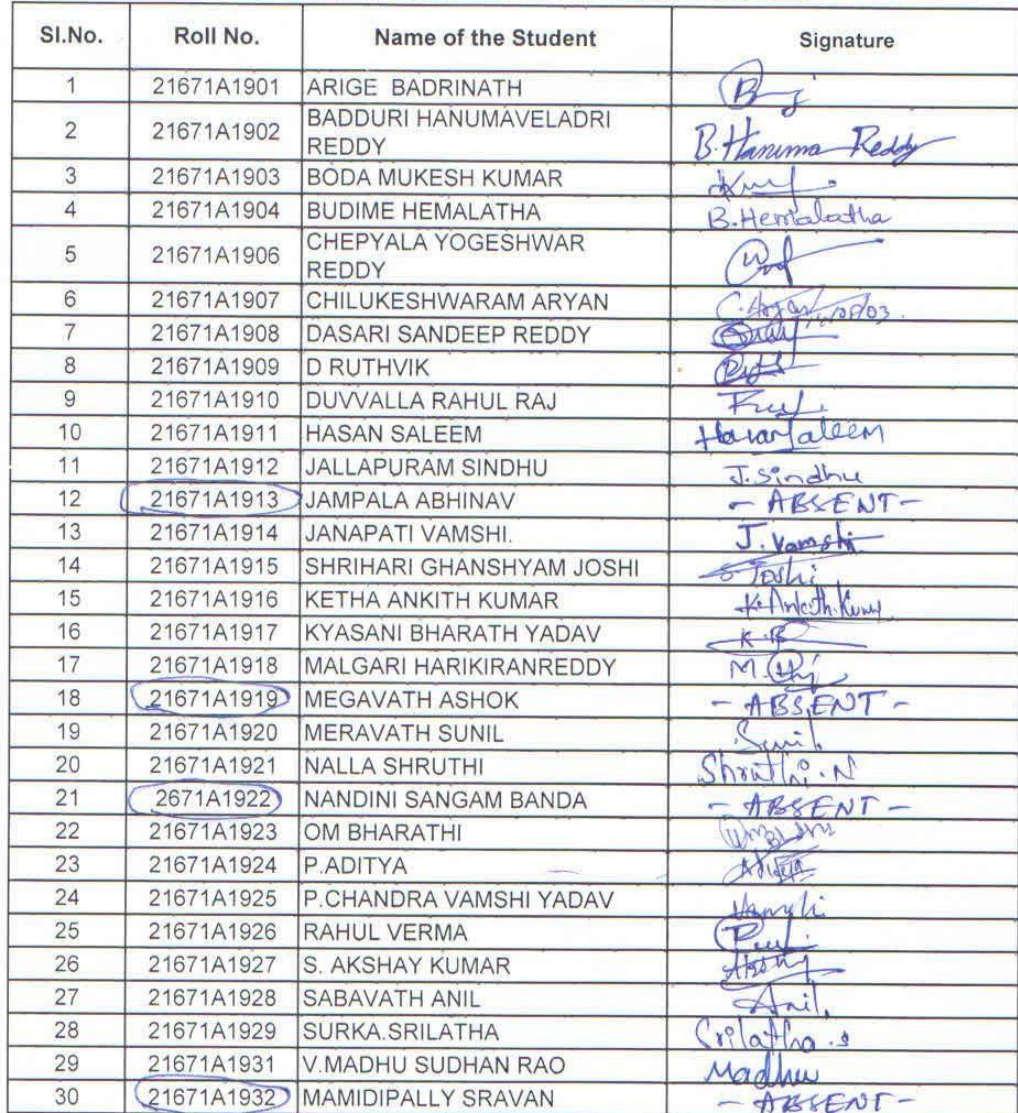 Sl.No. Roll No. Name of the Student Signature
1 21671A1901 ARIGE BADRINATH
2 21671A1902 BADDURI HANUMAVELADRI
REDDY B.Hanuma Reddy
3 21671A1903 BODA MUKESH KUMAR
4 21671A1904 BUDIME HEMALATHA B.Hemalatha
5 21671A1906 CHEPYALA YOGESHWAR
REDDY
6 21671A1907 CHILUKESHWARAM ARYAN C.Aryan
7 21671A1908 DASARI SANDEEP REDDY
8 21671A1909 D RUTHVIK
9 21671A1910 DUVVALLA RAHUL RAJ
10 21671A1911 HASAN SALEEM Hasan Saleem
11 21671A1912 JALLAPURAM SINDHU J.Sindhu
12 21671A1913 JAMPALA ABHINAV - ABSENT -
13 21671A1914 JANAPATI VAMSHI. J. Vamshi
14 21671A1915 SHRIHARI GHANSHYAM JOSHI S Joshi
15 21671A1916 KETHA ANKITH KUMAR K.Ankith.Kumar
16 21671A1917 KYASANI BHARATH YADAV K.B
17 21671A1918 MALGARI HARIKIRANREDDY M.
18 21671A1919 MEGAVATH ASHOK - ABSENT -
19 21671A1920 MERAVATH SUNIL Sunil
20 21671A1921 NALLA SHRUTHI Shruthi.N
21 2671A1922 NANDINI SANGAM BANDA - ABSENT -
22 21671A1923 OM BHARATHI
23 21671A1924 P.ADITYA Aditya
24 21671A1925 P.CHANDRA VAMSHI YADAV Vamshi
25 21671A1926 RAHUL VERMA
26 21671A1927 S. AKSHAY KUMAR
27 21671A1928 SABAVATH ANIL Anil
28 21671A1929 SURKA.SRILATHA Srilatha.s
29 21671A1931 V.MADHU SUDHAN RAO Madhu
30 21671A1932 MAMIDIPALLY SRAVAN - ABSENT -